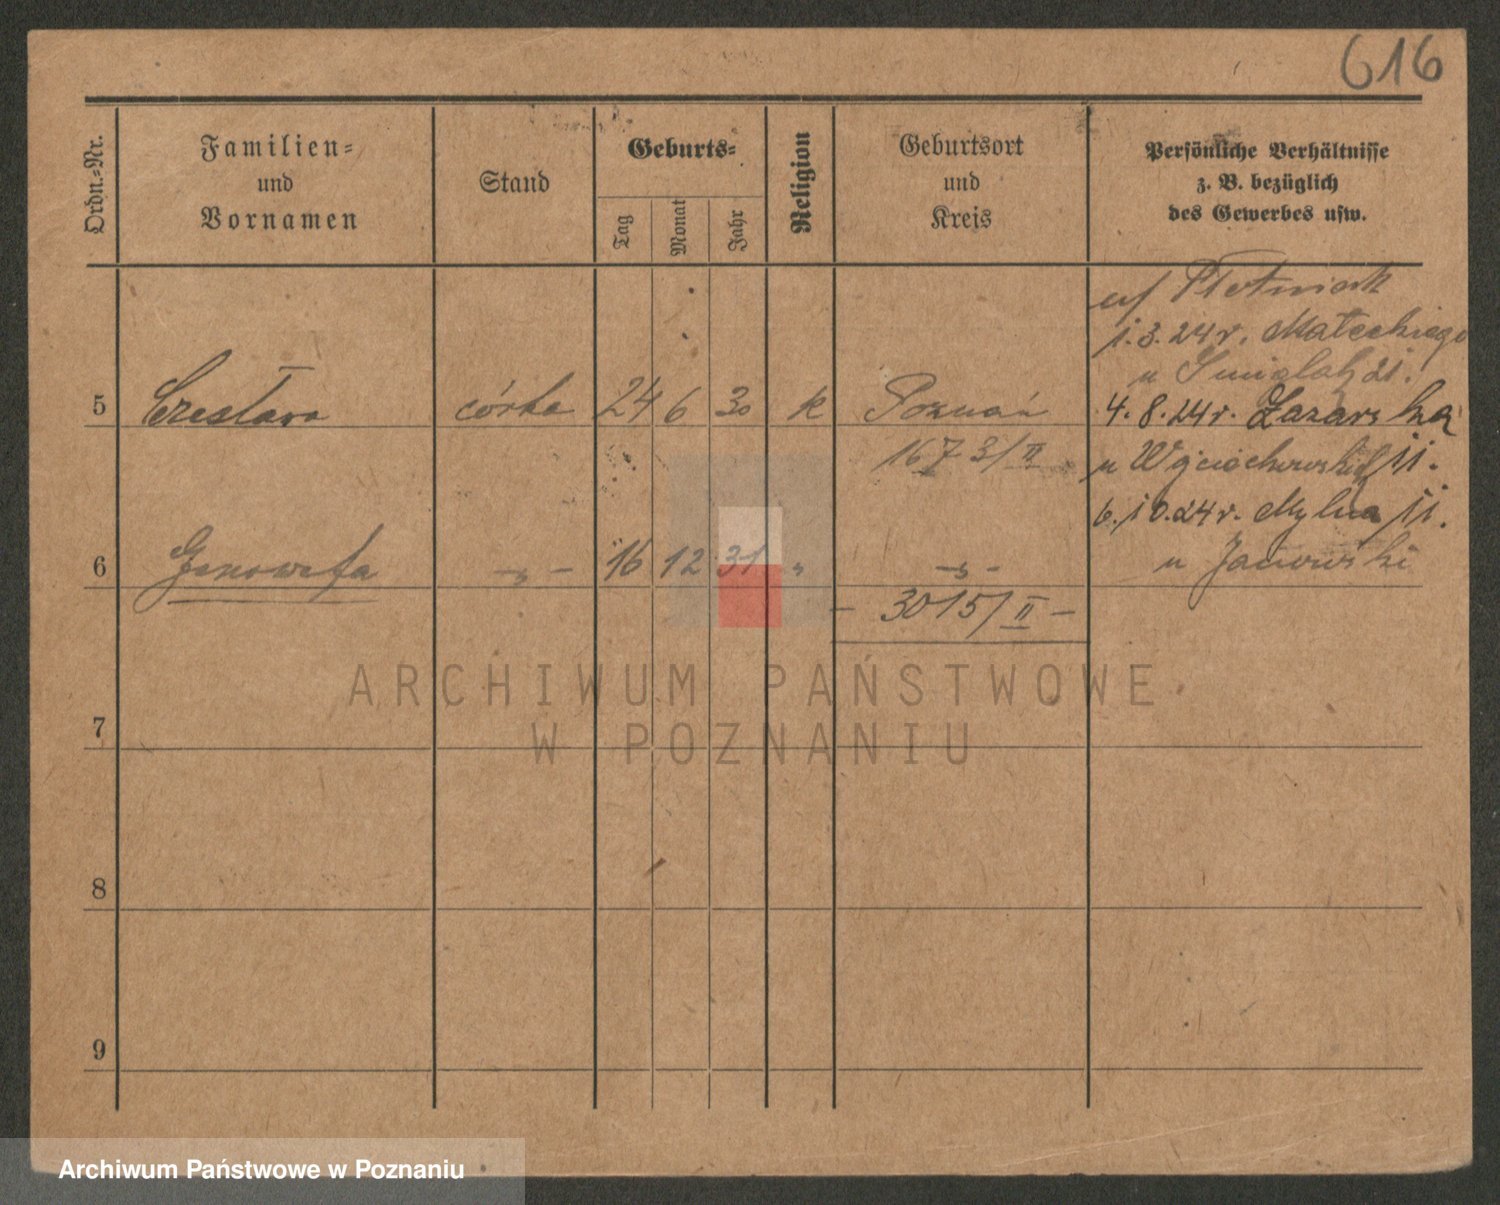 616
Ordn.-Nr.
Familien-
und
Vornamen
Stand
Geburts-
Tag
Monat
Jahr
Religion
Geburtsort
und
Kreis
Persönliche Verhältnisse
z. B. bezüglich
des Gewerbes usw.
1.3.24 r. Małeckiego
u
5 Czesława córka 24 6 30 k Poznań
4.8.24 r. Łazarska
1673/II
u Wojciechowski 11.
6.10.24 r. Mylna 11.
6 Genowefa -„- 16 12 31 „ -„-
u Janowski
- 3015/II -
ARCHIWUM PAŃSTWOWE
W POZNANIU
7
8
9
Archiwum Państwowe w Poznaniu